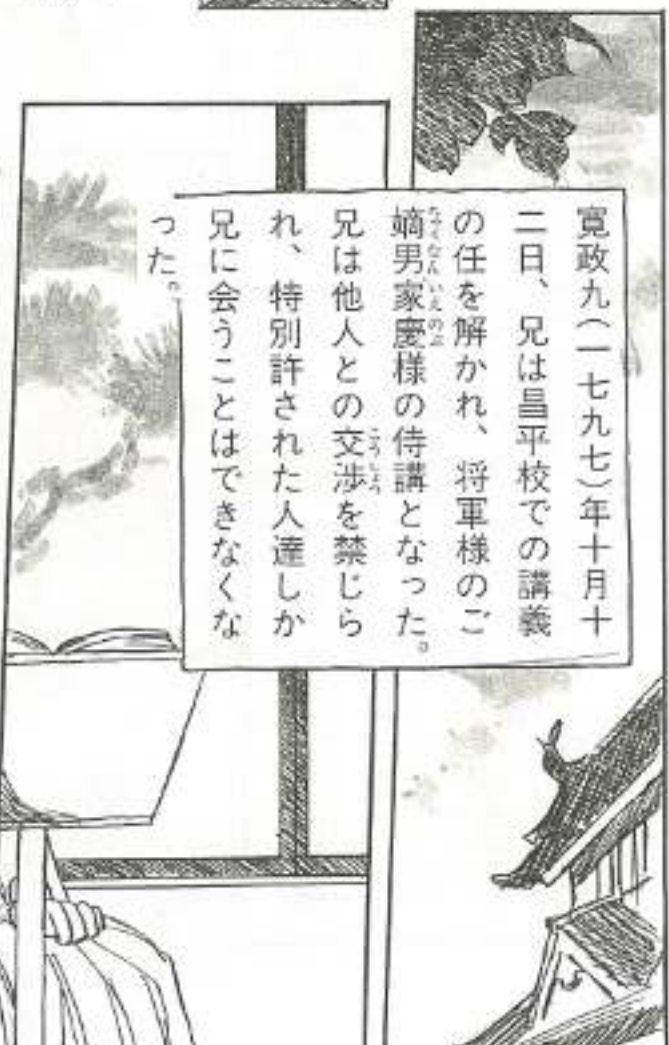 寛政九(一七九七)年十月十
二日、兄は昌平校での講義
の任を解かれ、将軍様のご
嫡男家慶様の侍講となった。
兄は他人との交渉を禁じら
れ、特別許された人達しか
兄に会うことはできなくな
った。